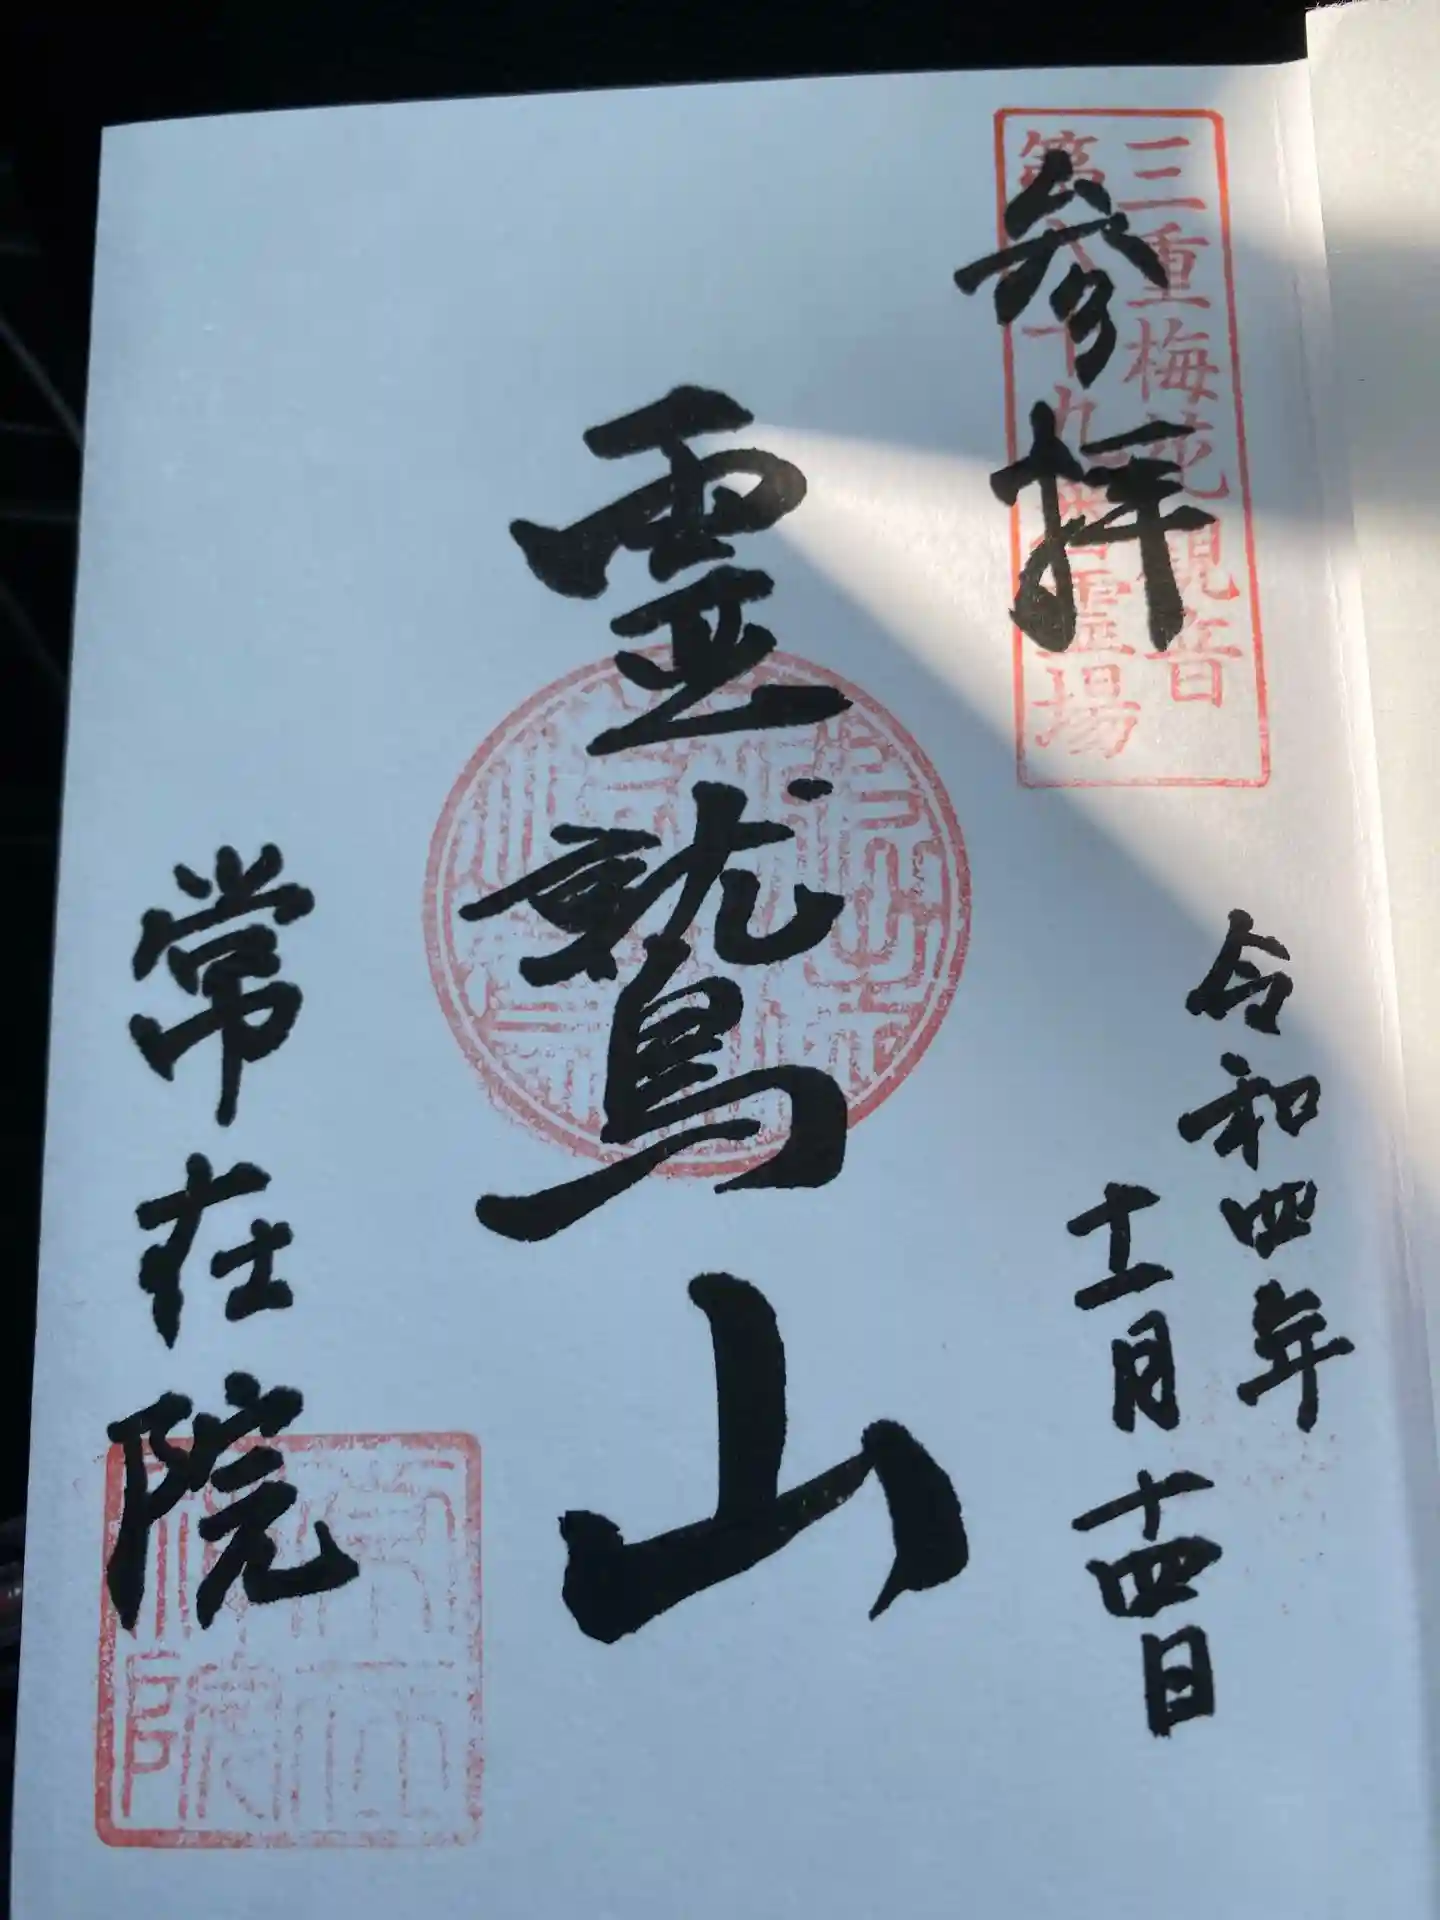 三重梅花観音
霊場
参拝
令和四年
十二月十四日
霊鷲山
常在院